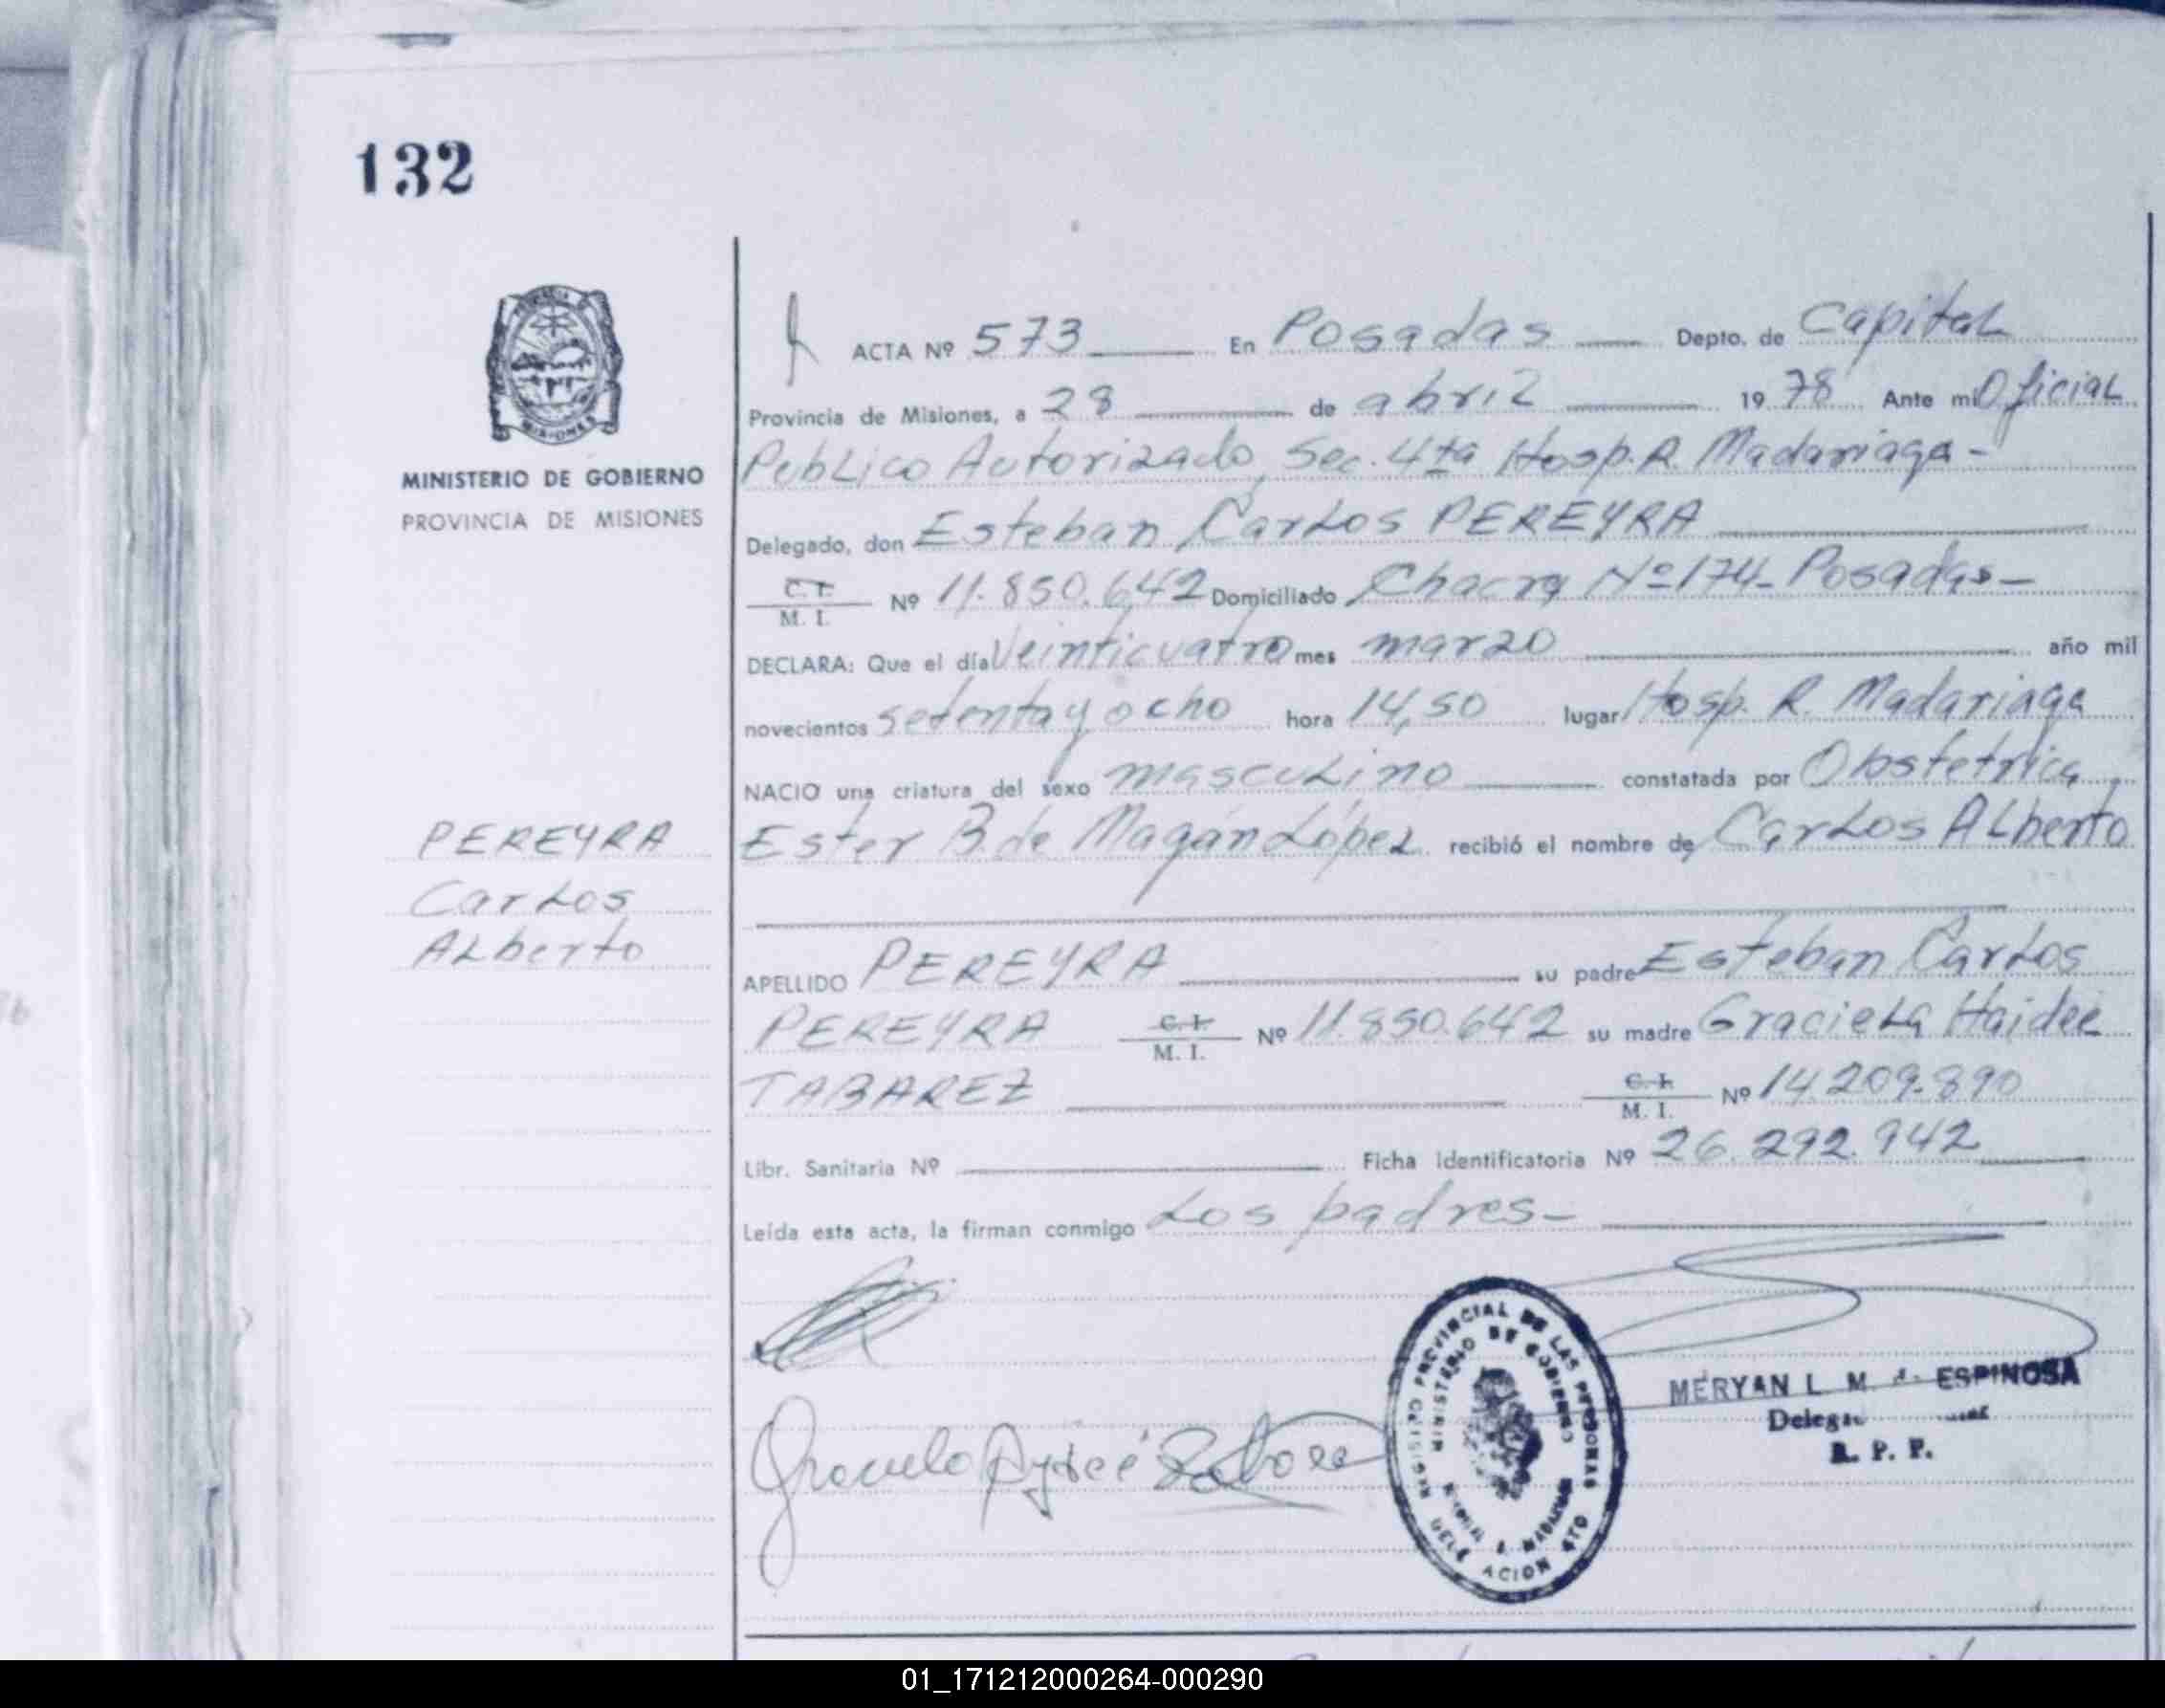 132
MINISTERIO DE GOBIERNO
PROVINCIA DE MISIONES
PEREYRA
Carlos
Alberto
ACTA Nº 573 En Posadas Depto. de Capital
Provincia de Misiones, a 28 de abril 1978 Ante mi Oficial
Publico Autorizado, Sec. 4ta Hosp. R. Madariaga -
Delegado, don Esteban Carlos PEREYRA
C. I. / M. I. Nº 11.850.642 Domiciliado Chacra Nº 174 - Posadas -
DECLARA: Que el día Veinticuatro mes marzo año mil
novecientos setenta y ocho hora 14,50 lugar Hosp. R. Madariaga
NACIO una criatura del sexo masculino constatada por Obstetrica,
Ester B. de Magán López recibió el nombre de Carlos Alberto
APELLIDO PEREYRA su padre Esteban Carlos
PEREYRA C. I. / M. I. Nº 11.850.642 su madre Graciela Haideé
TABAREZ C. I. / M. I. Nº 14.209.890
Libr. Sanitaria Nº Ficha Identificatoria Nº 26.292.942
Leída esta acta, la firman conmigo Los padres -
REGISTRO PROVINCIAL DE LAS PERSONAS
MINISTERIO DE GOBIERNO
DELEGACION 4TO
MERYAN L. M. de ESPINOSA
R. P. P.
01_171212000264-000290